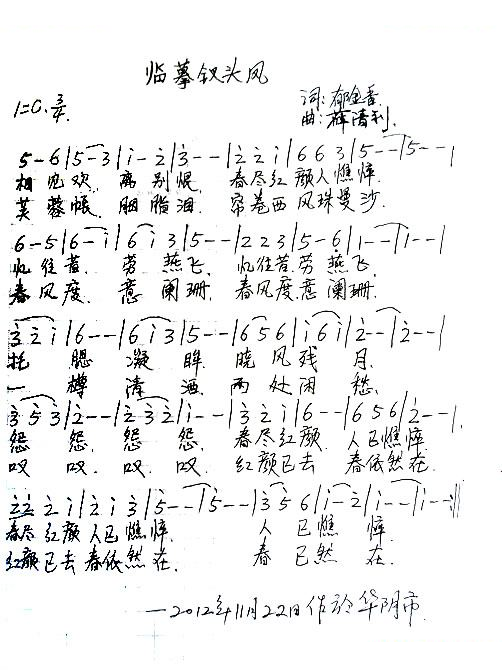 临摹钗头凤
1=C. 3/4.
词:郁金香
曲:薛清利.
5-6|5-3|i-2̇|3̇--|2̇2̇i|663|5--|5--|
相见欢. 离别恨. 春尽红颜人憔悴.
芙蓉帐. 胭脂泪. 帘卷西风珠曼沙.
6-5|6-i|6i3|5--|223|5-6|i--|i--|
忆往昔. 劳燕飞. 忆往昔劳燕飞.
春风度. 意阑珊. 春风度意阑珊.
3̇2̇i|6--|6i3|5--|656|i6i|2̇--|2̇--|
托腮凝眸 晓风残月.
一樽清酒 两处闲愁.
3̇5̇3̇|2̇--|2̇3̇2̇|i--|3̇2̇i|6--|656|2̇--|
怨. 怨. 怨. 怨. 春尽红颜 人已憔悴
叹. 叹. 叹. 叹. 红颜已去 春依然在.
2̇2̇2̇i|2̇i3̇|5̇--|5̇--|3̇56|i-2̇|i--|i--‖
春尽红颜人已憔悴. 人已憔悴.
红颜已去春依然在. 春已然在.
—2012年11月22日作於华阴市.